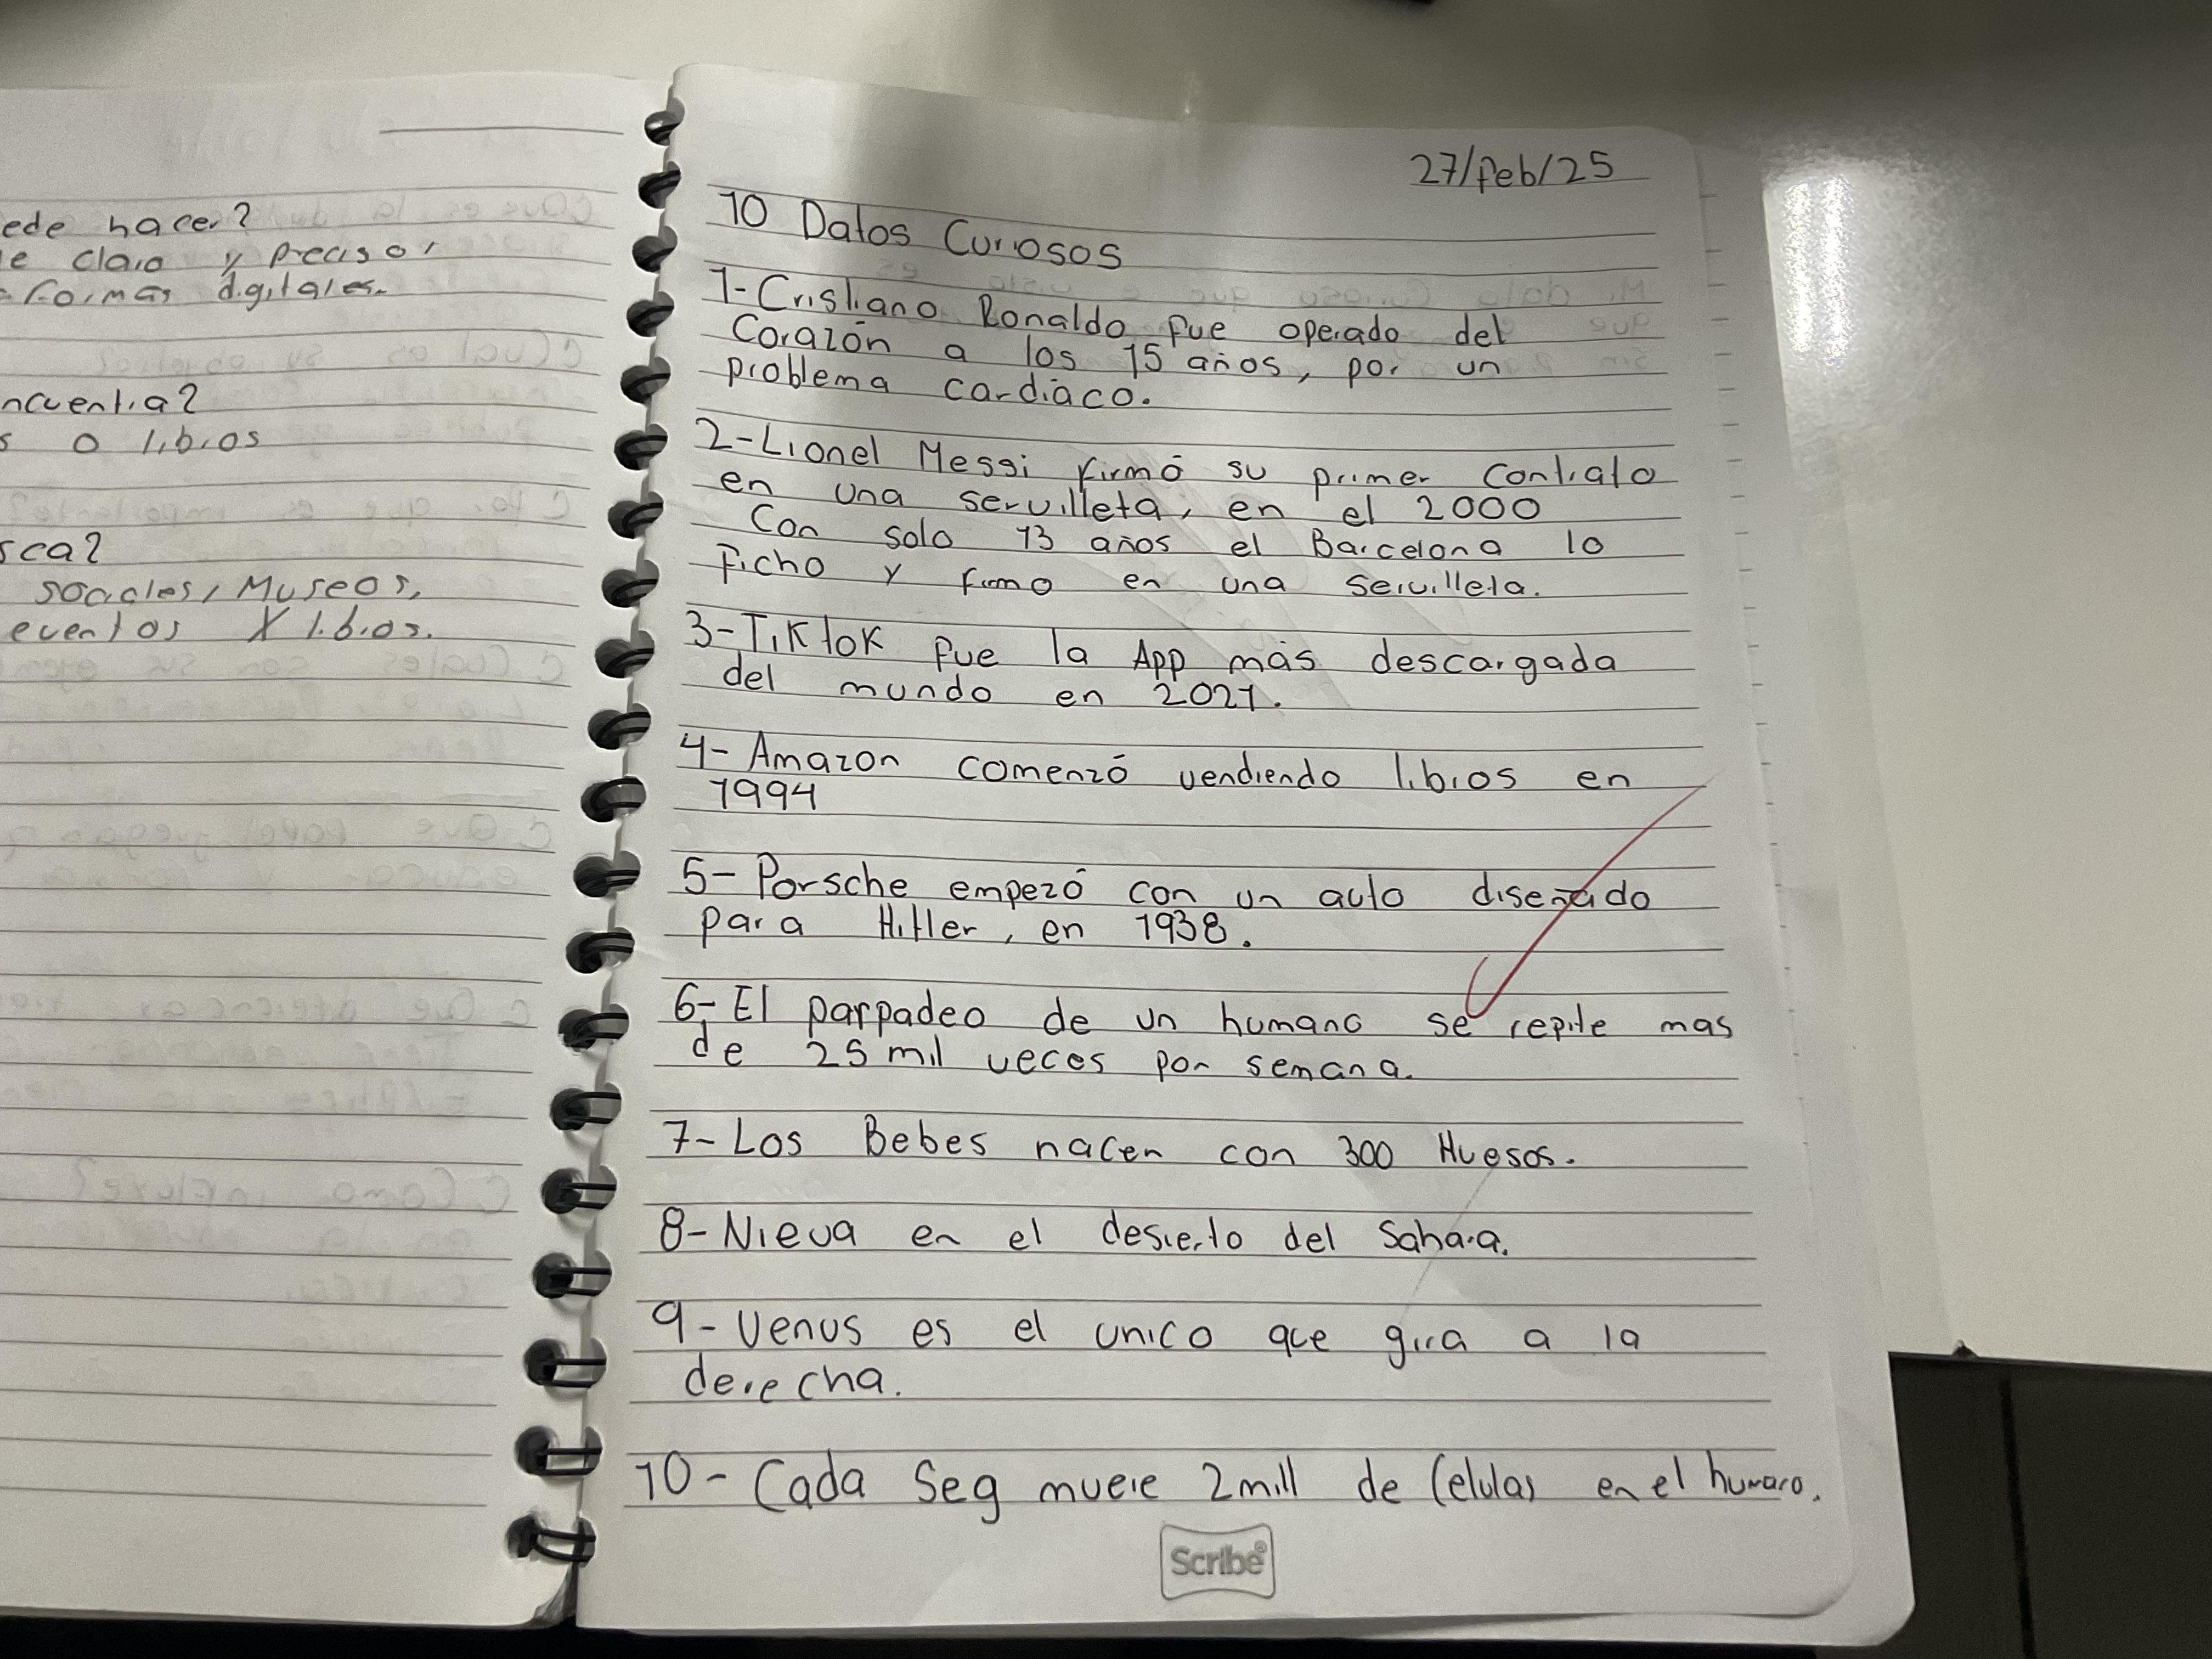 ede hacer?
e claro y preciso,
formas digitales.
ncuentra?
s o libros
sca?
sociales, Museos,
eventos X libros.
27/feb/25
10 Datos Curiosos
1-Cristiano Ronaldo fue operado del
Corazón a los 15 años, por un
problema cardiáco.
2-Lionel Messi firmó su primer Contrato
en una servilleta, en el 2000
Con solo 13 años el Barcelona lo
Ficho y firmo en una servilleta.
3-TikTok fue la App más descargada
del mundo en 2021.
4-Amazon comenzó vendiendo libros en
1994
5-Porsche empezó con un auto diseñado
para Hitler, en 1938.
6-El parpadeo de un humano se repite mas
de 25 mil veces por semana.
7-Los Bebes nacen con 300 Huesos.
8-Nieva en el desierto del Sahara.
9-Venus es el unico que gira a la
derecha.
10-Cada Seg muere 2mill de Celulas en el humano.
Scribe